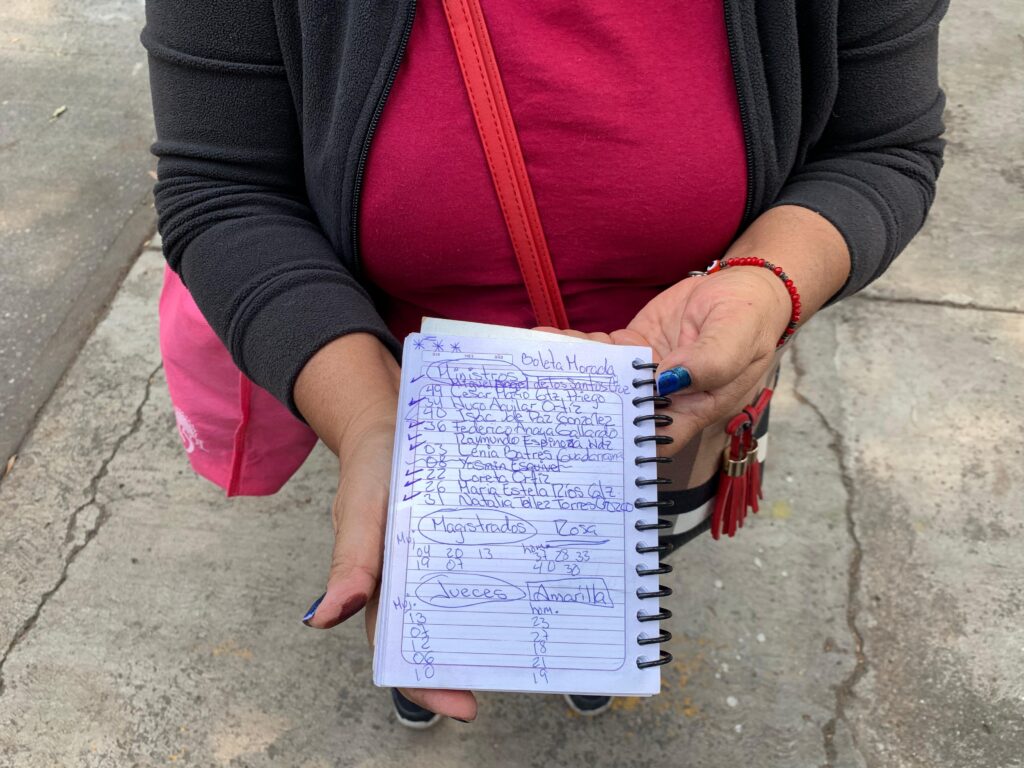 * * *
Boleta Morada
Ministros
Miguel Angel de los Santos Cruz
49 Cesar Mario Gtz. Priego
34 Hugo Aguilar Ortiz
40 Isaac de Paz Gonzalez
36 Federico Anaya Gallardo
Raimundo Espinoza Hdz
03 Lenia Batres Guadarrama
08 Yasmin Esquivel
22 Loreta Ortiz
26 Maria Estela Rios Glz
31 Natalia Tellez Torres Orozco
Magistrados Rosa
Muj. hom.
04 20 13 37 28 33
19 07 40 30
Jueces Amarilla
Muj. hom.
13 23
07 27
12 18
06 21
10 19